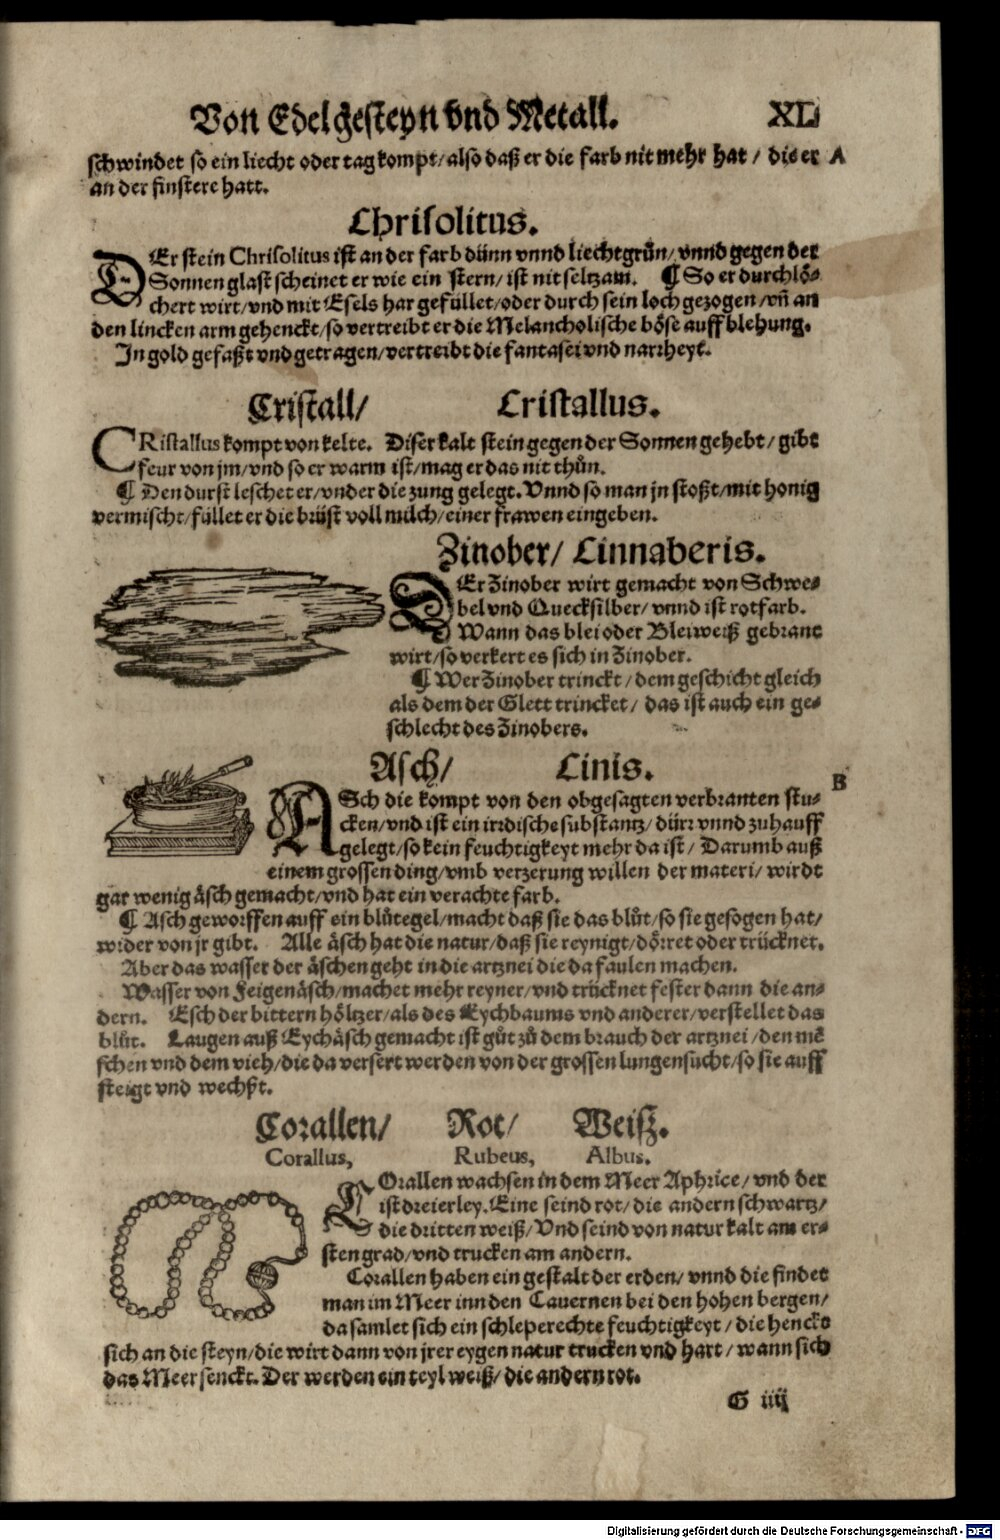 Von Edelgesteyn vnd Metall. XL
schwindet so ein liecht oder tag kompt/also daß er die farb nit mehr hat / die er A
an der finstere hatt.
Chrisolitus.
DEr stein Chrisolitus ist an der farb dünn vnnd liechtgrůn/vnnd gegen der
Sonnen glast scheinet er wie ein stern/ist nit seltzam. ¶ So er durchlö⸗
chert wirt/vnd mit Esels har gefüllet/oder durch sein loch gezogen/vñ an
den lincken arm gehenckt/so vertreibt er die Melancholische böse auffblehung.
In gold gefaßt vnd getragen/vertreibt die fantasei vnd narrheyt.
Cristall/ Cristallus.
CRistallus kompt von kelte. Diser kalt stein gegen der Sonnen gehebt/gibt
feur von jm/vnd so er warm ist/mag er das nit thůn.
¶ Den durst leschet er/vnder die zung gelegt. Vnnd so man jn stoßt/mit honig
vermischt/füllet er die brüst voll milch/einer frawen eingeben.
Zinober/ Cinnaberis.
DEr Zinober wirt gemacht von Schwe⸗
bel vnd Quecksilber/vnnd ist rotfarb.
Wann das blei oder Bleiweiß gebrant
wirt/so verkert es sich in Zinober.
¶ Wer Zinober trinckt/dem geschicht gleich
als dem der Glett trincket/ das ist auch ein ge⸗
schlecht des Zinobers.
Asch/ Cinis.
B
ASch die kompt von den obgesagten verbranten stu⸗
cken/vnd ist ein irrdische substantz/dürr vnnd zuhauff
gelegt/so kein feuchtigkeyt mehr da ist/ Darumb auß
einem grossen ding/vmb verzerung willen der materi/wirdt
gar wenig äsch gemacht/vnd hat ein verachte farb.
¶ Asch geworffen auff ein blůtegel/macht daß sie das blůt/so sie gesogen hat/
wider von jr gibt. Alle äsch hat die natur/daß sie reynigt/dörret oder trücknet.
Aber das wasser der äschen geht in die artznei die da faulen machen.
Wasser von Feigenäsch/machet mehr reyner/vnd trücknet fester dann die an⸗
dern. Esch der bittern höltzer/als des Eychbaums vnd anderer/verstellet das
blůt. Laugen auß Eychäsch gemacht ist gůt zů dem brauch der artznei/den mē
schen vnd dem vieh/die da versert werden von der grossen lungensucht/so sie auff
steigt vnd wechßt.
Corallen/ Rot/ Weiß.
Corallus, Rubeus, Albus.
COrallen wachsen in dem Meer Aphrice/vnd der
ist dreierley. Eine seind rot/die andern schwartz/
die dritten weiß/Vnd seind von natur kalt am er⸗
sten grad/vnd trucken am andern.
Corallen haben ein gestalt der erden/vnnd die findet
man im Meer inn den Cauernen bei den hohen bergen/
da samlet sich ein schleperechte feuchtigkeyt/die henckt
sich an die steyn/die wirt dann von jrer eygen natur trucken vnd hart/wann sich
das Meer senckt. Der werden ein teyl weiß/die andern rot.
G iiij
Digitalisierung gefördert durch die Deutsche Forschungsgemeinschaft - DFG